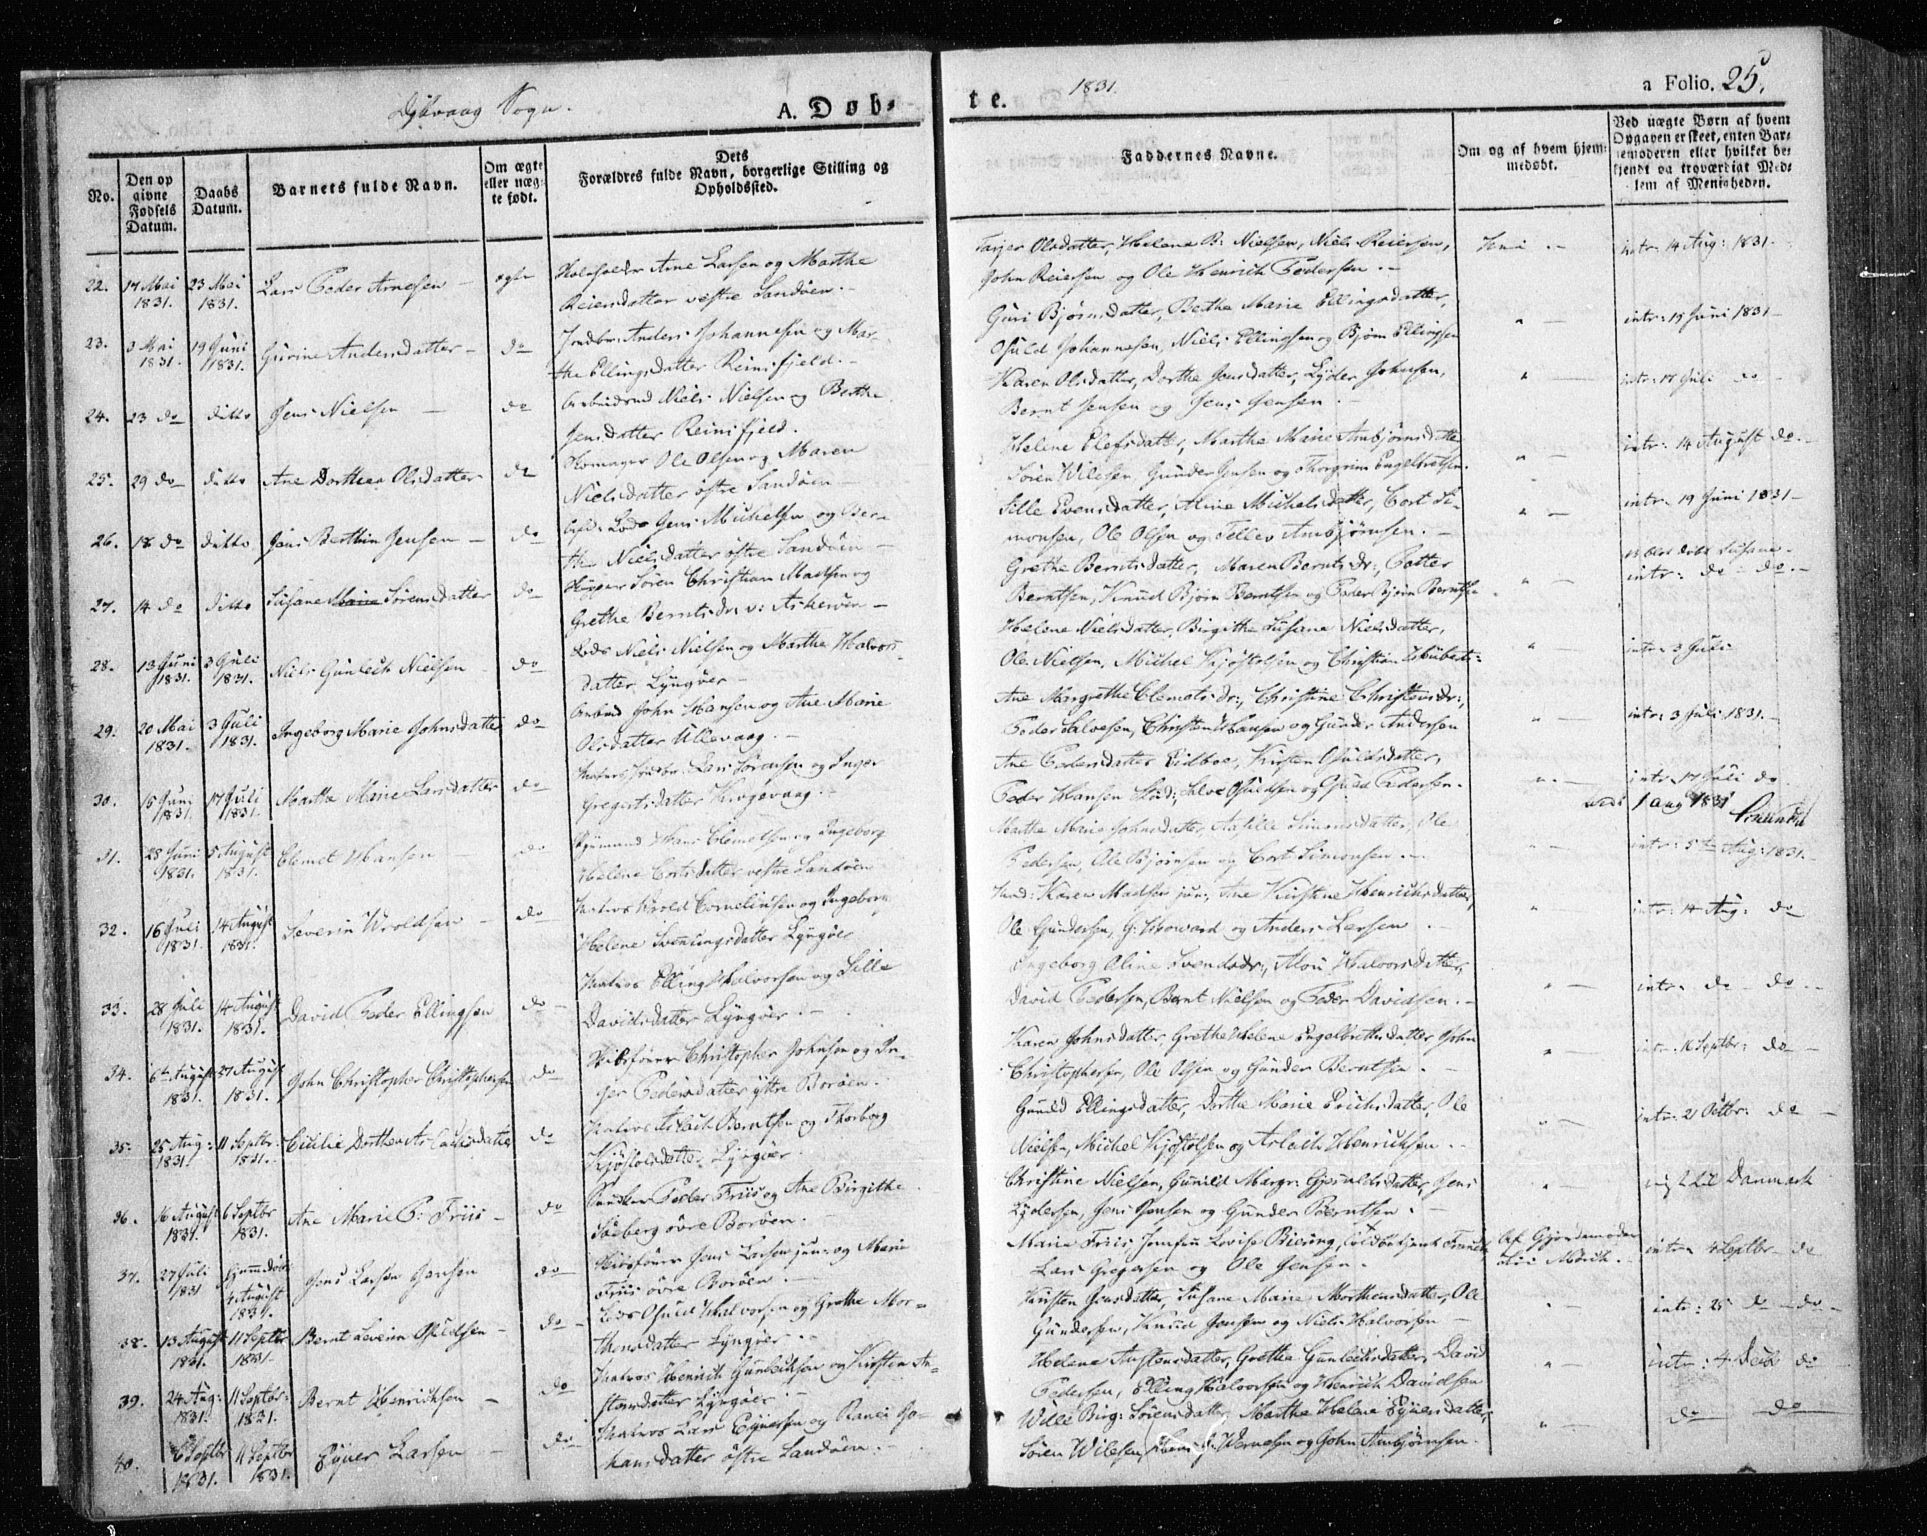 Dybvaag Sogn.
A. Døb-
te.
1831.
a Folio. 25.
No.
Den op
givne
Fødsels
Datum.
Daabs
Datum.
Barnets fulde Navn.
Om ægte
eller uæg-
te født.
Dets
Forældres fulde Navn, borgerlige Stilling og
Opholdssted.
Faddernes Navne.
Om og af hvem hjem-
medøbt.
Ved uægte Børn af hvem
Opgaven er skeet, enten Bar-
nemoderen eller hvilket be-
kjendt og troværdigt Med-
lem af Menigheden.
22. 17 Mai 1831. 23 Mai 1831. Lars Peder Arnesen — ægte
Arne Larsen og Marthe
Reiersdatter vestre Sandøen. —
Tarjer Olsdatter, Helene B: Nielsen, Niels Reiersen,
John Reiersen og Ole Henrich Pedersen. —
intr. 14 Aug: 1831.
23. 3 Mai 1831. 19 Juni 1831. Gurine Andersdatter — do
Inds: Anders Johannesen og Mar-
the Ellingsdatter Reinsfjeld. —
Guri Bjørnsdatter, Berthe Marie Ellingsdatter,
Osuld Johannesen, Niels Ellingsen og Bjørn Ellingsen
" — intr: 15 Juni 1831 —
24. 23 do ditto Jens Nielsen — do
Arbeidsmd Niels Nielsen og Berthe
Jensdatter Reinsfjeld.
Karen Olsdatter, Dorthe Jensdatter, Lyder Johnsen,
Bernt Jensen og Jens Jensen. —
" — intr: 17 Juli do —
25. 29 do — ditto Ane Dorthea Olsdatter do
Ole Olsen og Maren
Nielsdatter østre Sandøen —
Helene Olefsdatter, Marthe Marie Ambjørnsdatter
Søren Wilesen, Gunder Jensen og Thorgrim Engelbretsen.
" — intr: 14 August do. —
26. 18 do ditto Jens Berthin Jensen — do
Lods Jens Michelsen og Ber-
the Nielsdatter østre Sandøen —
Sille Evensdatter, Aline Michelsdatter, Cort Si-
monsen, Ole Olsen og Tellev Ambjørnsen. —
" — intr. 19 Juni 1831 —
27. 14 do ditto Susane Marie Sørensdatter do
Skipper Søren Christian Madsen og
Grethe Berntsdr: v: Askerøen —
Grethe Berntsdatter, Maren Berntsdr:, Petter
Berntsen, Knud Bjørn Berntsen og Peder Bjørn Berntsen.
" — intr: do — do. —
28. 13 Juni 1831. 3 Juli 1831. Niels Gunlech Nielsen — do
Lods Niels Nielsen og Marthe Halvors-
datter Lyngøer —
Helene Nielsdatter, Birgithe Susane Nielsdatter,
Ole Nielsen, Michel Kjøstolsen og Christian Huberts:
" — intr: 3 Juli
29. 20 Mai 1831. 3 Juli 1831. Ingeborg Marie Johnsdatter do
Arbmd John Hansen og Ane Marie
Olsdatter Ullevaag. —
Ane Margrethe Clemetsdr:, Christine Christensdr:,
Peder Salvesen, Christen Hansen og Gunder Andersen
" — intr: 3 Juli 1831. —
30. 15 Juni 1831. 17 Juli 1831. Marthe Marie Larsdatter do —
Lars Sørensen og Inger
Gregersdatter Krogevaag. —
Ane Pedersdatter Eidboe, Kirsten Osuldsdatter,
Peder Hansen, Salve Osuldsen og Osuld Pedersen.
" — intr. 17 Juli do
1 aug 1831
31. 28 Juni 1831. 5 August 1831. Clemet Hansen — do
Hans Clemetsen og Ingeborg
Helene Cortsdatter vestre Sandøen
Marthe Marie Johnsdatter, Aasille Simonsdatter, Ole
Pedersen, Ole Bjørnsen og Cort Simonsen. —
" — intr: 5te Aug: 1831. —
32. 16 Juli 1831. 14 August 1831. Severin Wroldsen — do
Matros Wrold Corneliusen og Ingeborg
Helene Svenningsdatter Lyngøer
Mad: Karen Madsen jun:, Ane Kirstine Henrichsdatter,
Ole Gundersen, G: Howard og Anders Larsen. —
" intr: 14 Aug: do
33. 28 Juli 1831. 14 August 1831. David Peder Ellingsen do —
Matros Elling Halvorsen og Sille
Davidsdatter Lyngøer. —
Ingeborg Aline Svendsdr:, Alou Halvorsdatter,
David Pedersen, Bernt Nielsen og Peder Davidsen. —
" — intr. do — do. —
34. 6te August 1831. 21 August 1831. John Christopher Christophersen do
Skibsfører Christopher Johnsen og In-
ger Pedersdatter yttre Borøen. —
Karen Johnsdatter, Grethe Helene Engelbrethsdatter, John
Christophersen, Ole Olsen og Gunder Berntsen. —
" — intr. 16 Septbr: do —
35. 25 Aug: 1831. 11 Septbr: 1831. Cicilie Dorthea Aslaksdatter do
Matros Aslach Berntsen og Thorborg
Kjøstolsdatter Lyngøer.
Gunild Ellingsdatter, Dorthe Marie Erichsdatter, Ole
Nielsen, Michel Kjøstolsen og Aslach Henrichsen. —
" — intr: 2 Octbr: do —
36. 16 August 1831. 6 Septbr 1831. Ane Marie P: Friis — do
Peder Friis og Ane Birgithe
Soeberg øvre Borøen. —
Christine Nielsen, Gunild Margr: Gjeruldsdatter, Jens
Lydersen, Jens Jensen og Gunder Berntsen. —
" — til Danmark
37. 27 Juli 1831 hjemdøbt 4 August 1831. Jens Larsen Jensen do
Skibsfører Jens Larsen jun: og Marie
Friis øvre Borøen. —
Maria Friis, Jomfru Lovise Biering, Toldbetjent Friis,
Lars Gregersen og Ole Jensen. —
Af Gjordemoder
Mörch. — intr: 4 Septbr — do
38. 13 August 1831. 11 Septbr 1831. Bernt Severin Osuldsen — do —
Lods Osuld Halvorsen og Grethe Mor-
thensdatter Lyngøer. —
Kirsten Jensdatter, Susane Marie Morthensdatter, Ole
Gundersen, Knud Jensen og Niels Halvorsen —
" — intr: 25 do — do —
39. 24 Aug: 1831. 11 Septbr: 1831. Bernt Henrichsen — do
Matros Henrich Gunlechsen og Kirsten An-
stensdatter Lyngøer. —
Helene Anstensdatter, Grethe Gunlechsdatter, David
Pedersen, Elling Halvorsen og Henrich Davidsen
" — intr: 4 Decb do
40. 6 Septbr 1831. 11 Septbr 1831. Eyver Larsen — do
Matros Lars Eyversen og Ranei Jo-
hansdatter østre Sandøen. —
Wille Birg: Sørensdatter, Marthe Helene Eyversdatter,
Søren Wilesen, Wernesen og John Ambjørnsen.
" — do — do